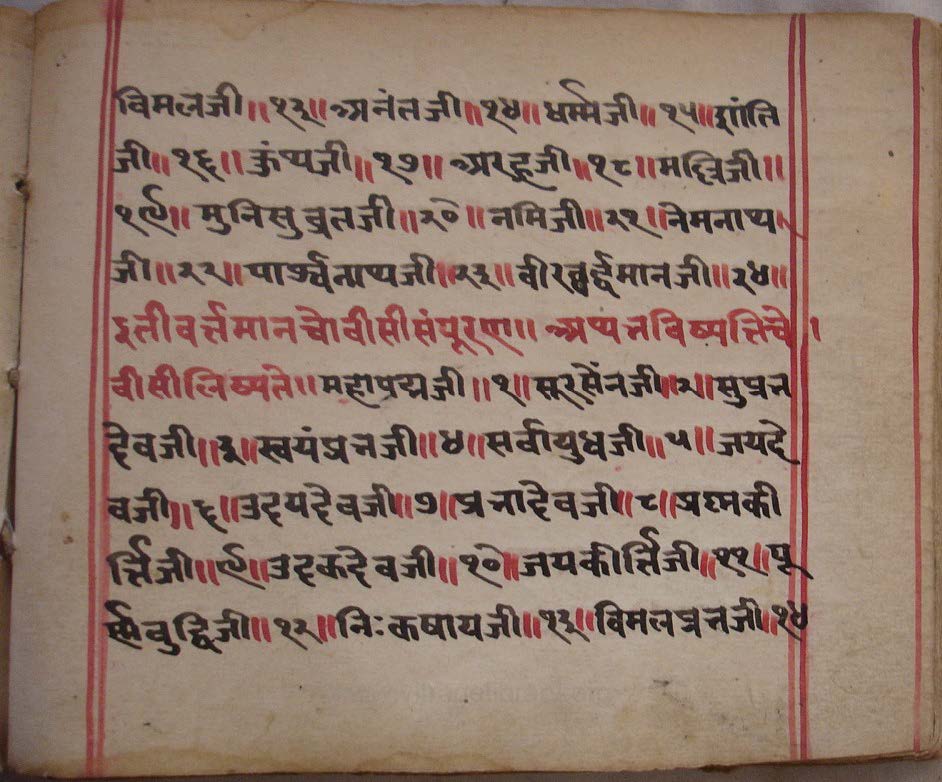 विमलजी॥१३॥अनंतजी॥१४॥धर्म्मजी॥१५॥शांति
जी॥१६॥कुंथजी॥१७॥अरहजी॥१८॥मल्लिजी॥
१९॥मुनिसुव्रतजी॥२०॥नमिजी॥२१॥नेमनाथ
जी॥२२॥पार्श्वनाथजी॥२३॥वीरवर्द्धमानजी॥२४॥
इतीवर्त्तमानचोवीसीसंपूरण॥अथभविष्यत्तिचो
वीसीलिष्यंते॥महापद्मजी॥१॥सूरसेंनजी॥२॥सुप्रभ
देवजी॥३॥स्वयंप्रभजी॥४॥सर्वायुधजी॥५॥जयदे
वजी॥६॥उदयदेवजी॥७॥प्रभादेवजी॥८॥प्रश्नकी
र्त्तिजी॥९॥उदकदेवजी॥१०॥जयकीर्त्तिजी॥११॥पू
र्णबुद्धिजी॥१२॥निःकषायजी॥१३॥विमलप्रभजी॥१४